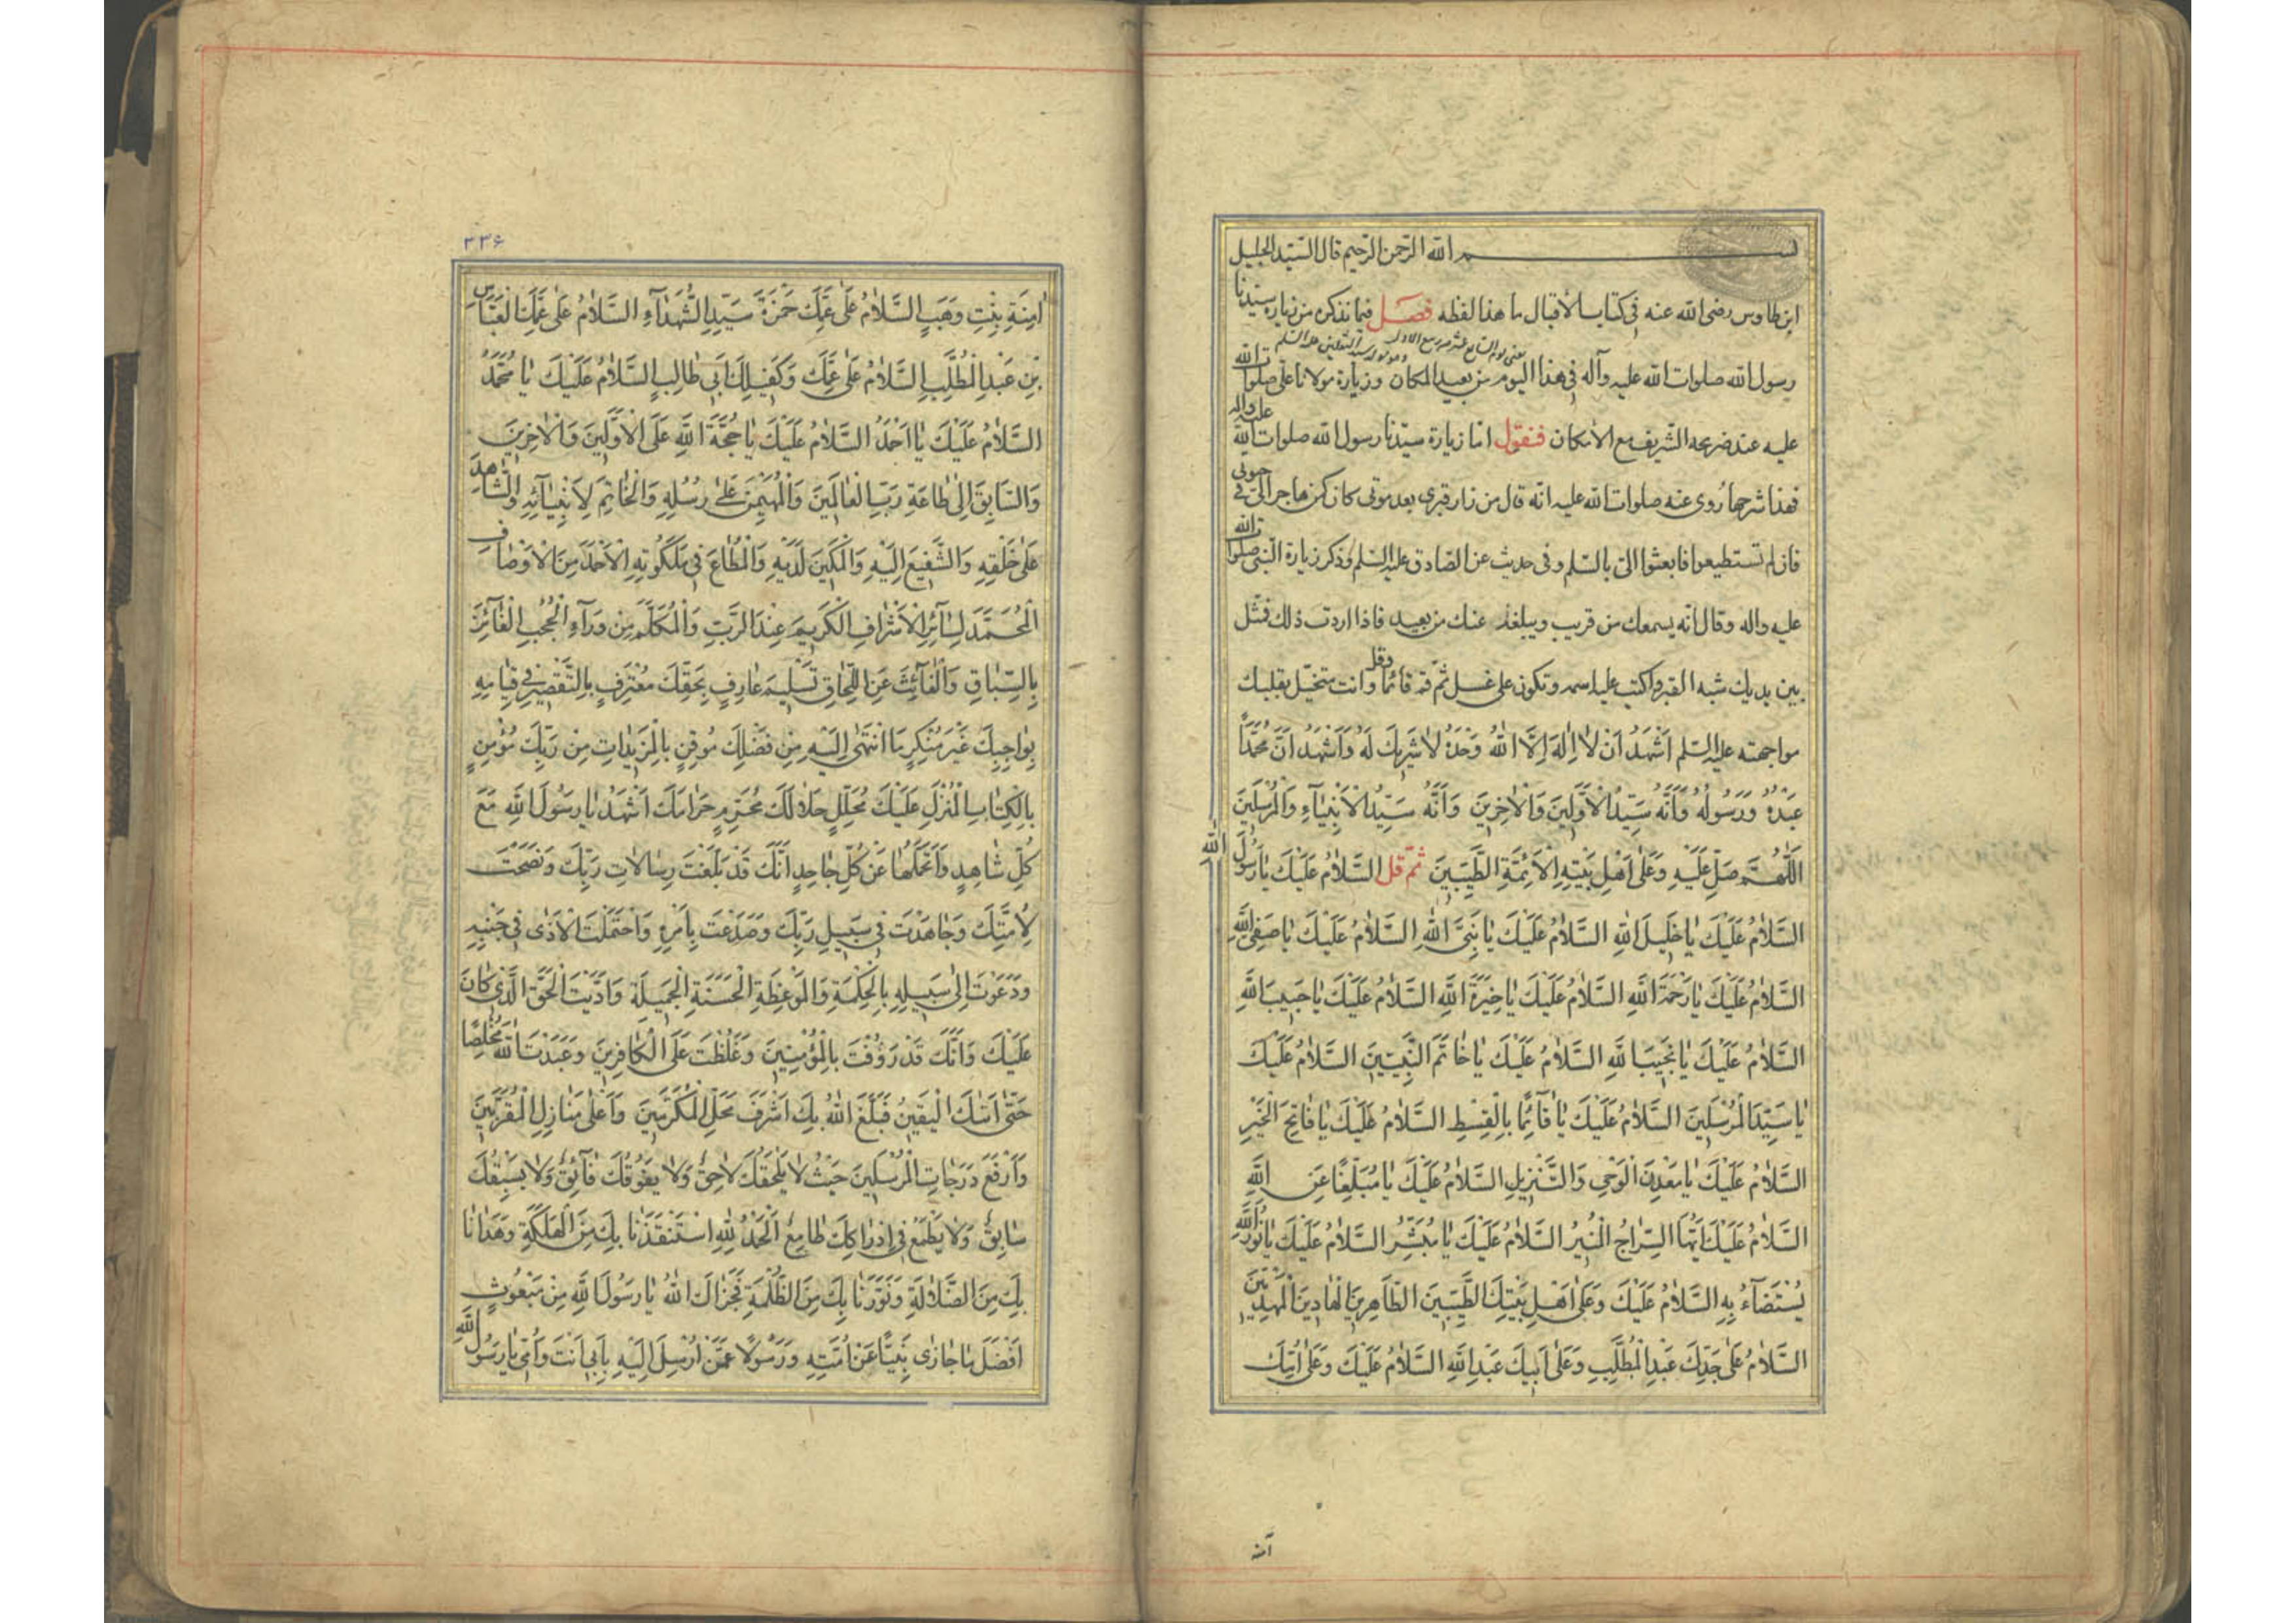 بسم الله الرحمن الرحيم قال السّيّد الجليل
ابن طاوس رضى الله عنه فى كتاب الأقبال ما هذا لفظه فصل فيما نذكره من زيارة سيّدنا
يعنى يوم السّابع عشر من ربيع الاول
رسول الله صلوات الله عليه وآله فى هذا اليوم من بعيد المكان وزيارة مولانا علىّ صلوات الله
عليه عند ضريحه الشّريف مع الامكان فنقول امّا زيارة سيّدنا رسول الله صلوات الله عليه واله
فهذا شرحها رُوى عنه صلوات الله عليه انّه قال من زار قبرى بعد موتى كان كمن هاجر الىّ فى حيوتى
فان لم تستطيعوا فابعثوا الىّ بالسّلم وفى حديث عن الصّادق عليه السّلم وذكر زيارة النّبىّ صلوات الله
عليه واله وقال انّه يسمعك من قريب ويبلغه عنك من بعيد فاذا اردت ذلك فمثّل
بين يديك شبه القبر واكتب عليه اسمه وتكون على غسل ثمّ قم قائمًا وقل وانت متخيّل بقلبك
مواجهته عليه السّلم اَشْهَدُ اَنْ لٰا اِلٰهَ اِلَّا اللّٰهُ وَحْدَهُ لٰا شَرِيكَ لَهُ وَاَشْهَدُ اَنَّ مُحَمَّدًا
عَبْدُهُ وَرَسُولُهُ وَاَنَّهُ سَيِّدُ الْاَوَّلِينَ وَالْاٰخِرِينَ وَاَنَّهُ سَيِّدُ الْاَنْبِيٰاۤءِ وَالْمُرْسَلِينَ
اَللّٰهُمَّ صَلِّ عَلَيْهِ وَعَلٰى اَهْلِ بَيْتِهِ الْاَئِمَّةِ الطَّيِّبِينَ ثمّ قل السَّلٰامُ عَلَيْكَ يٰا رَسُولَ اللّٰهِ
السَّلٰامُ عَلَيْكَ يٰا خَلِيلَ اللّٰهِ السَّلٰامُ عَلَيْكَ يٰا نَبِىَّ اللّٰهِ السَّلٰامُ عَلَيْكَ يٰا صَفِىَّ اللّٰهِ
السَّلٰامُ عَلَيْكَ يٰا رَحْمَةَ اللّٰهِ السَّلٰامُ عَلَيْكَ يٰا خِيَرَةَ اللّٰهِ السَّلٰامُ عَلَيْكَ يٰا حَبِيبَ اللّٰهِ
السَّلٰامُ عَلَيْكَ يٰا نَجِيبَ اللّٰهِ السَّلٰامُ عَلَيْكَ يٰا خٰاتَمَ النَّبِيّينَ السَّلٰامُ عَلَيْكَ
يٰا سَيِّدَ الْمُرْسَلِينَ السَّلٰامُ عَلَيْكَ يٰا قٰاۤئِمًا بِالْقِسْطِ السَّلٰامُ عَلَيْكَ يٰا فٰاتِحَ الْخَيْرِ
السَّلٰامُ عَلَيْكَ يٰا مَعْدِنَ الْوَحْىِ وَالتَّنْزِيلِ السَّلٰامُ عَلَيْكَ يٰا مُبَلِّغًا عَنِ اللّٰهِ
السَّلٰامُ عَلَيْكَ اَيُّهَا السِّرٰاجُ الْمُنِيرُ السَّلٰامُ عَلَيْكَ يٰا مُبَشِّرُ السَّلٰامُ عَلَيْكَ يٰا نُورَ اللّٰهِ
يُسْتَضٰاۤءُ بِهِ السَّلٰامُ عَلَيْكَ وَعَلٰى اَهْلِ بَيْتِكَ الطَّيِّبِينَ الطّٰاهِرِينَ الْهٰادِينَ الْمَهْدِيّينَ
السَّلٰامُ عَلٰى جَدِّكَ عَبْدِ الْمُطَّلِبِ وَعَلٰى اَبِيكَ عَبْدِ اللّٰهِ السَّلٰامُ عَلَيْكَ وَعَلٰى اُمِّكَ
آمنة
۳۳۶
اٰمِنَةَ بِنْتِ وَهَبٍ السَّلٰامُ عَلٰى عَمِّكَ حَمْزَةَ سَيِّدِ الشُّهَدٰاۤءِ السَّلٰامُ عَلٰى عَمِّكَ الْعَبّٰاسِ
بْنِ عَبْدِ الْمُطَّلِبِ السَّلٰامُ عَلٰى عَمِّكَ وَكَفِيلِكَ اَبِى طٰالِبٍ السَّلٰامُ عَلَيْكَ يٰا مُحَمَّدُ
السَّلٰامُ عَلَيْكَ يٰا اَحْمَدُ السَّلٰامُ عَلَيْكَ يٰا حُجَّةَ اللّٰهِ عَلَى الْاَوَّلِينَ وَالْاٰخِرِينَ
وَالسّٰابِقَ اِلٰى طٰاعَةِ رَبِّ الْعٰالَمِينَ وَالْمُهَيْمِنَ عَلٰى رُسُلِهِ وَالْخٰاتِمَ لِاَنْبِيٰاۤئِهِ وَالشّٰاهِدَ
عَلٰى خَلْقِهِ وَالشَّفِيعَ اِلَيْهِ وَالْمَكِينَ لَدَيْهِ وَالْمُطٰاعَ فِى مَلَكُوتِهِ الْاَحْمَدَ مِنَ الْاَوْصٰافِ
الْمُحَمَّدَ لِسٰاۤئِرِ الْاَشْرٰافِ الْكَرِيمَ عِنْدَ الرَّبِّ وَالْمُكَلَّمَ مِنْ وَرٰاۤءِ الْحُجُبِ الْفٰاۤئِزَ
بِالسِّبٰاقِ وَالْفٰاۤئِتَ عَنِ اللِّحٰاقِ تَسْلِيمَ عٰارِفٍ بِحَقِّكَ مُعْتَرِفٍ بِالتَّقْصِيرِ فِى قِيٰامِهِ
بِوٰاجِبِكَ غَيْرَ مُنْكِرٍ مَا انْتَهٰى اِلَيْهِ مِنْ فَضْلِكَ مُوقِنٍ بِالْمَزِيدٰاتِ مِنْ رَبِّكَ مُؤْمِنٍ
بِالْكِتٰابِ الْمُنْزَلِ عَلَيْكَ مُحَلِّلٍ حَلٰالَكَ مُحَرِّمٍ حَرٰامَكَ اَشْهَدُ يٰا رَسُولَ اللّٰهِ مَعَ
كُلِّ شٰاهِدٍ وَاَتَحَمَّلُهٰا عَنْ كُلِّ جٰاحِدٍ اَنَّكَ قَدْ بَلَّغْتَ رِسٰالٰاتِ رَبِّكَ وَنَصَحْتَ
لِاُمَّتِكَ وَجٰاهَدْتَ فِى سَبِيلِ رَبِّكَ وَصَدَعْتَ بِاَمْرِهِ وَاحْتَمَلْتَ الْاَذٰى فِى جَنْبِهِ
وَدَعَوْتَ اِلٰى سَبِيلِهِ بِالْحِكْمَةِ وَالْمَوْعِظَةِ الْحَسَنَةِ الْجَمِيلَةِ وَاَدَّيْتَ الْحَقَّ الَّذِى كٰانَ
عَلَيْكَ وَاَنَّكَ قَدْ رَؤُفْتَ بِالْمُؤْمِنِينَ وَغَلُظْتَ عَلَى الْكٰافِرِينَ وَعَبَدْتَ اللّٰهَ مُخْلِصًا
حَتّٰى اَتٰىكَ الْيَقِينُ فَبَلَغَ اللّٰهُ بِكَ اَشْرَفَ مَحَلِّ الْمُكَرَّمِينَ وَاَعْلٰى مَنٰازِلِ الْمُقَرَّبِينَ
وَاَرْفَعَ دَرَجٰاتِ الْمُرْسَلِينَ حَيْثُ لٰا يَلْحَقُكَ لٰاحِقٌ وَلٰا يَفُوقُكَ فٰاۤئِقٌ وَلٰا يَسْبِقُكَ
سٰابِقٌ وَلٰا يَطْمَعُ فِى اِدْرٰاكِكَ طٰامِعٌ اَلْحَمْدُ لِلّٰهِ اسْتَنْقَذَنٰا بِكَ مِنَ الْهَلَكَةِ وَهَدٰانٰا
بِكَ مِنَ الضَّلٰالَةِ وَنَوَّرَنٰا بِكَ مِنَ الظُّلْمَةِ فَجَزٰاكَ اللّٰهُ يٰا رَسُولَ اللّٰهِ مِنْ مَبْعُوثٍ
اَفْضَلَ مٰا جٰازٰى نَبِيًّا عَنْ اُمَّتِهِ وَرَسُولًا عَمَّنْ اُرْسِلَ اِلَيْهِ بِاَبِى اَنْتَ وَاُمِّى يٰا رَسُولَ اللّٰهِ